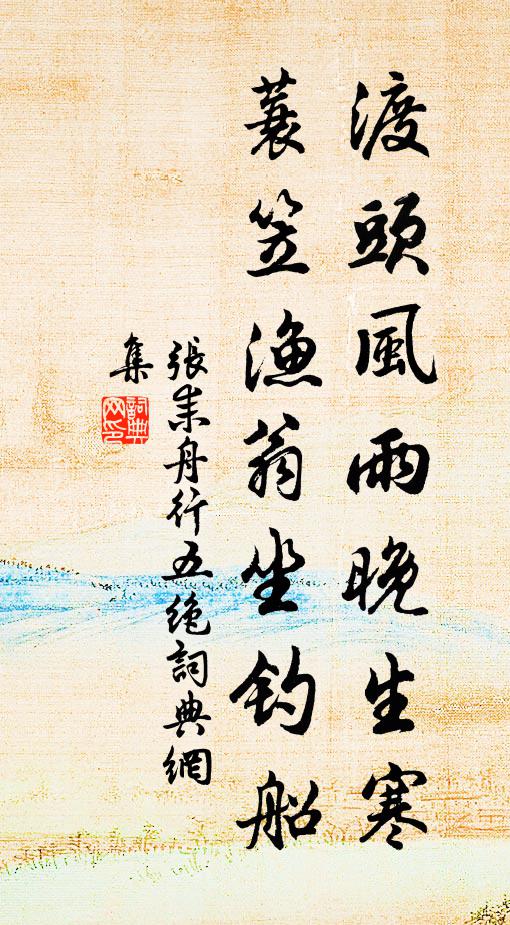 渡頭風雨晚生寒
蓑笠漁翁坐釣船
張耒舟行五絶詞典網
集
詞典网印